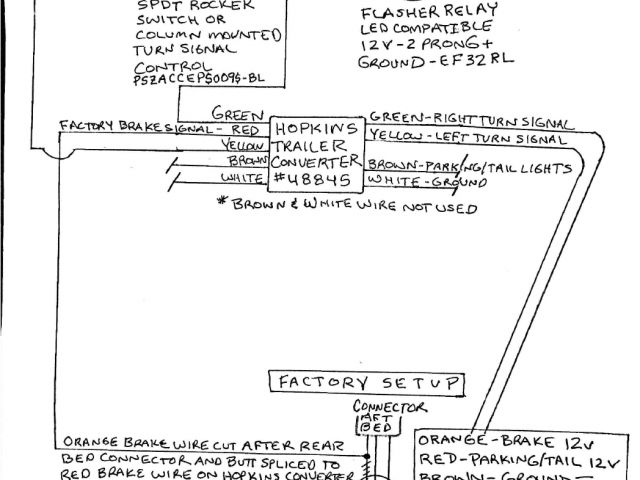 SPDT ROCKER
SWITCH OR
COLUMN MOUNTED
TURN SIGNAL
CONTROL
PSZACCEPS009S-BL
FLASHER RELAY
LED COMPATIBLE
12V-2 PRONG +
GROUND-EF32RL
GREEN
FACTORY BRAKE SIGNAL- RED
YELLOW
BROWN
WHITE
HOPKINS
TRAILER
CONVERTER
#48845
GREEN-RIGHT TURN SIGNAL
YELLOW-LEFT TURN SIGNAL
BROWN-PARKING/TAIL LIGHTS
WHITE-GROUND
* BROWN & WHITE WIRE NOT USED
FACTORY SETUP
CONNECTOR
AFT
BED
ORANGE BRAKE WIRE CUT AFTER REAR
BED CONNECTOR AND BUTT SPLICED TO
RED BRAKE WIRE ON HOPKINS CONVERTER
ORANGE-BRAKE 12V
RED-PARKING/TAIL 12V
BROWN-GROUND-